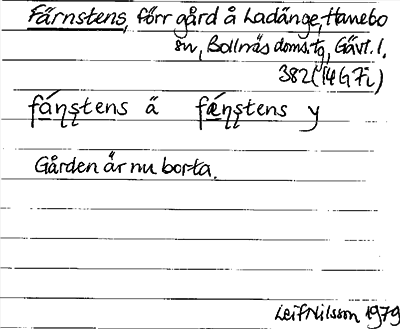 Färnstens, förr gård å Ladänge, Hanebo
sn, Bollnäs doms.tg, Gävl. l.
382 (14 G 7 i)
fá̱n̨s̨tens ä fǽ̱n̨s̨tens y
Gården är nu borta.
Leif Nilsson 1979